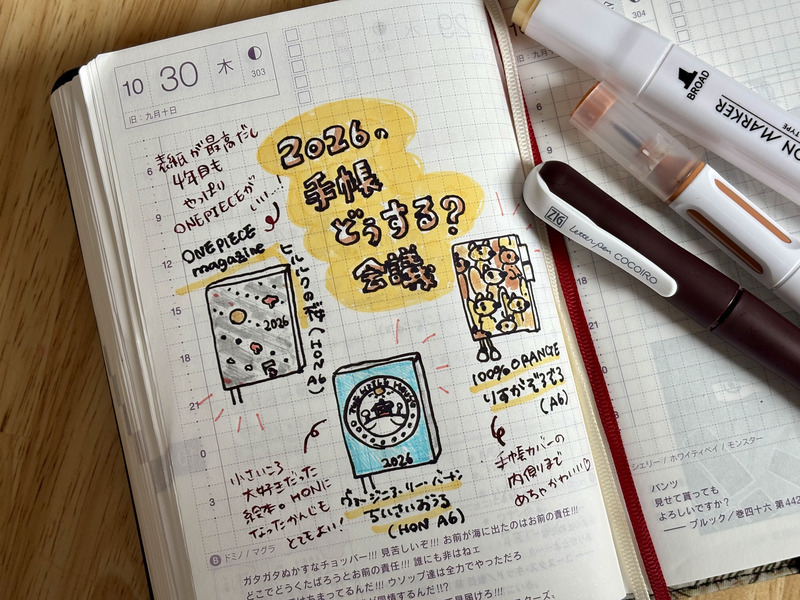 10 30 木 303
旧：九月十日
304
旧：九月十
2026の
手帳
どうする?
会議
表紙が最高だし
4年目も
やっぱり
ONEPIECEが
いい…
ONEPIECE
magazine
ヒルルクの桜(A6)
2026
100% ORANGE
りすがぞろぞろ
(A6)
手帳カバーの
内側まで
めちゃかわいい♡
THE LITTLE HOUSE
2026
ヴァージニア・リー・バートン
ちいさいおうち
(HON A6)
小さいころ
大好きだった
絵本。HONに
なったかんじも
とてもよい!
6
9
12
15
18
21
0
3
6 ドミノ / マグラ
ガタガタぬかすなチョッパー!!! 見苦しいぞ!!! お前が海に出たのはお前の責任!!!
どこでどうくたばろうとお前の責任!!! 誰にも非はねェ
はあまってるんだ!!! ウソップ達は全力でやっただろ
シェリー / ホワイティベイ / モンスター
パンツ
見せて貰っても
よろしいですか?
―― ブルック / 巻四十六 第442
BROAD
ON MARKER
TYPE
ZIG Letter pen COCOIRO